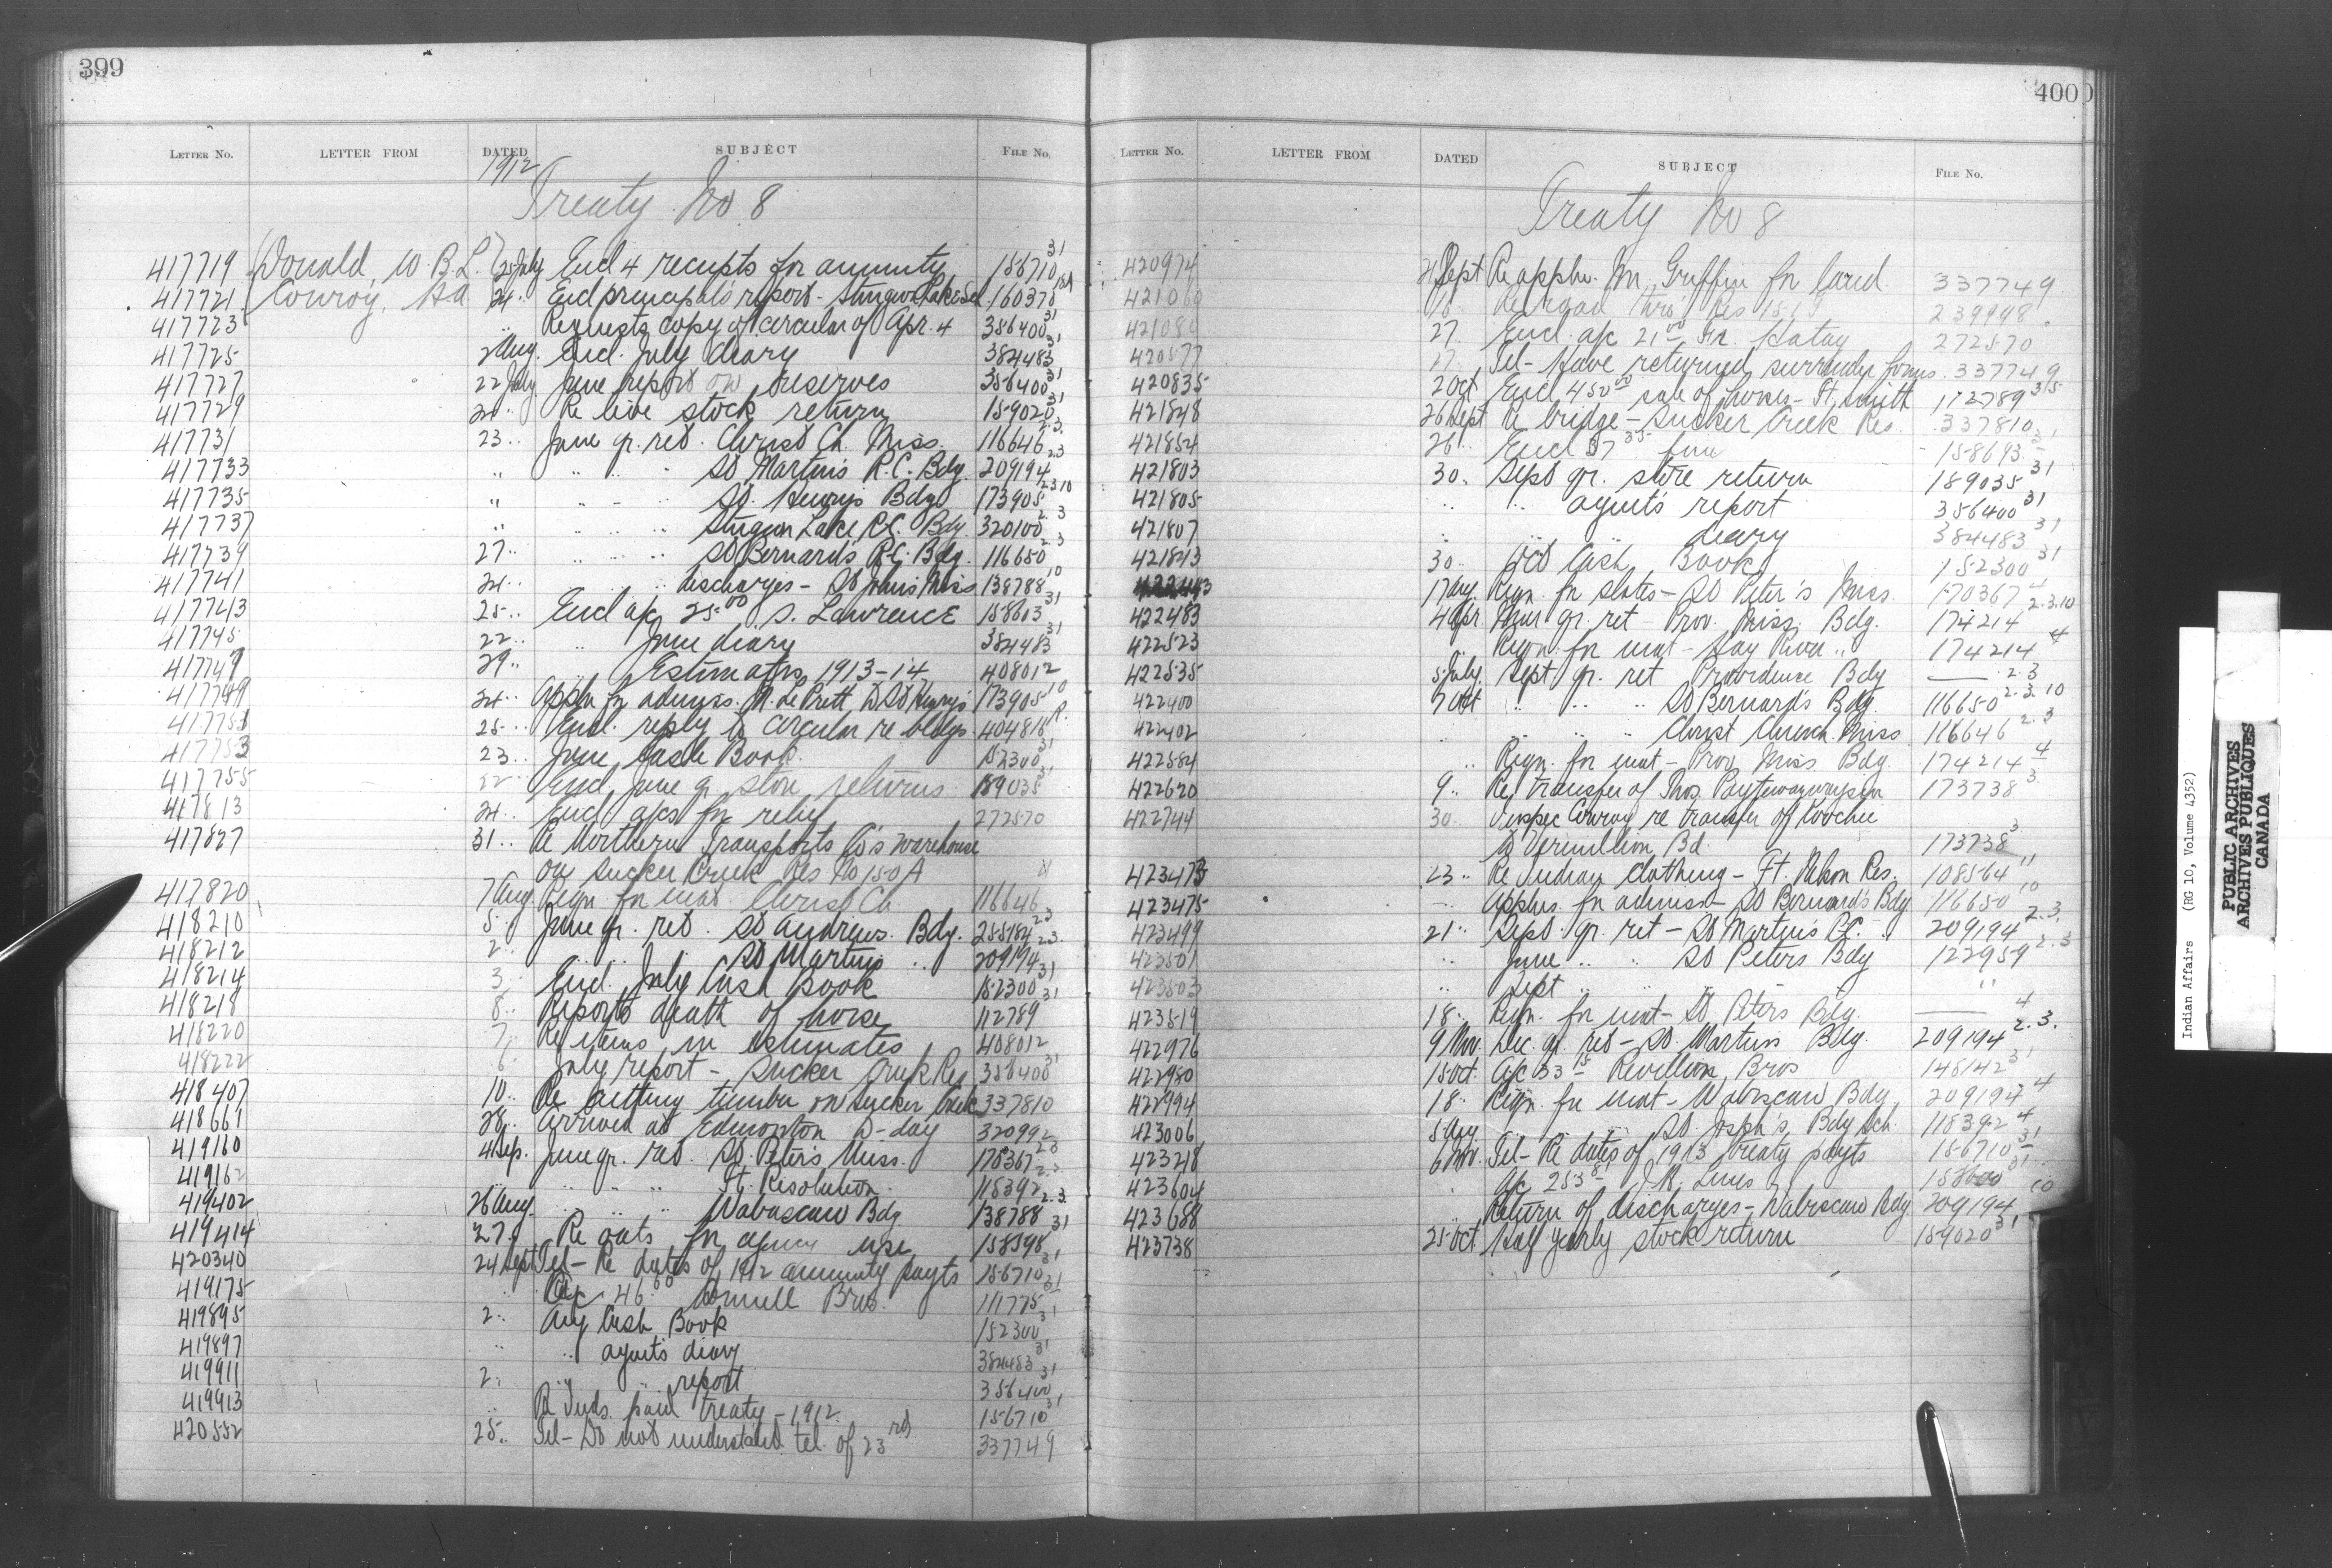 399
LETTER NO. LETTER FROM DATED SUBJECT FILE NO.
1912
Treaty No 8
417719 (Donald, W.B.L.) 25 July Encl 4 receipts for annuity 156710 31
417721 Conroy, HA 24 " Encl principal's report - Sturgeon Lake Sch 160370
417723 " Requests copy of circular of Apr. 4 386400 31
417725 2 Aug. Encl. July diary 384483 31
417727 22 July June report on reserves 356400 31
417729 24 " Re live stock return 159020 31
417731 23 " June qr. ret. Christ Ch. Miss. 116646 2.3.
417733 " " " " St Martin's R.C. Bdg. 209194 2.3
417735 " " " " St. Henry's Bdg 173905 2.3.10
417737 " " " " Sturgeon Lake R.C. Bdg. 320100 2.3
417739 27 " " " " St Bernard's R.C. Bdg. 116650 2.3
417741 24 " " " discharges - St John's Miss 138788 10
417743 25 " Encl a/c 25 00 S. Lawrence 158603 31
417745 22 " " June diary 384483 31
417747 29 " Estimates, 1913-14 408012
417749 24 " Appln for admiss. to St Henry's 173905 10
417751 25 " Encl. reply to circular re bldgs. 404818
417753 23 " June Cash Book. 152300 31
417755 22 " Encl June qr. store returns 189035 31
417813 24 " Encl a/cs for relief 272570
417827 31 " Re Northern Transports Co's warehouse
on Sucker Creek Res No 150 A
417820 7 Aug Reqn. for mat. Christ Ch. 116646
418210 5 " June qr. ret. St Andrew's Bdg. 255184 2.3
418212 2 " " " St Martins " 209194 2.3.
418214 3 " Encl. July Cash Book 152300 31
418218 8 " Reports death of horse 112789 31
418220 7 " Re items in estimates 408012
418222 6 " July report - Sucker Creek Res 356400 31
418407 10 " Re cutting timber on Sucker Creek 337810
418661 28 " Arrived at Edmonton to-day 320992
419160 4 Sep. June qr. ret. St. Peter's Miss. 170367 2.3
419162 " " " Ft. Resolution 118392 2.3
419402 26 Aug. " " " Wabascaw Bdg. 138788 2.3.
419414 27 " Re oats for agency use 158598 31
420340 24 Sept Tel - Re dates of 1912 annuity payts 156710 31
419175 " A/c 46 00 Bros. 111775 31
419895 2 " Aug Cash Book 152300 31
419897 " " agent's diary 384483 31
419911 2 " " " report 356400 31
419913 " Re Inds. paid treaty - 1912. 156710 31
420532 25 " Tel - Do not understand tel. of 23rd 337749
400
LETTER NO. LETTER FROM DATED SUBJECT FILE NO.
Treaty No 8
420974 21 Sept Re appln. M. Griffin for land 337749
421060 16 " Re road thro' Res 239948
421080 27 " Encl. a/c 21 00 272570
420577 27 " Tel - Have returned surrender forms. 337749
420835 2 Oct Encl 450 00 sale of horses - Ft. Smith 112789 31
421848 26 Sept Re bridge - Sucker Creek Res. 337810
421854 26 " Encl 37 35 158693 31
421803 30 " Sept qr. store return 189035 31
421805 " " agent's report 356400 31
421807 " " diary 384483 31
421843 30 " Oct Cash Book 152300 31
17 Aug. Reqn. for slates - St Peter's Miss. 170367 4
422483 4 Apr Mar qr. ret - Prov. Miss. Bdg. 174214 2.3.10
422523 Reqn. for mat - Hay River " 174214 4
422535 5 July. Sept qr. ret Providence Bdg — 2.3
422400 7 Oct " " " St Bernard's Bdg. 116650 2.3.10
422402 " " " " Christ Church Miss 116646 2.3
422584 " Reqn. for mat - Prov Miss. Bdg. 174214 4
422620 9 " Re transfer of Thos. 173738 3
422744 30 " Inspec Conroy re transfer of Koochie
to Vermillion Bd. 173738 3
423473 23 " Re Indian clothing - Ft. Nelson Res. 108564 11
423475 " Applns. for admiss - St Bernard's Bdg 116650 10
423499 21 " Sept qr. ret - St Martin's R.C. " 209194 2.3.
423501 " June " " St Peters Bdg 122959 2.3
423503 " Sept " " " " "
423519 18 " Reqn. for mat - St Peters Bdg. — 4
422976 9 Nov. Dec. qr. ret - St. Martins Bdg. 209194 2.3.
422980 15 Oct. A/c 33 15 Revillon Bros 146142 31
422994 18 " Reqn. for mat - Wabiscaw Bdg 209194 4
423006 5 Aug " " " St. Josph's Bdg Sch. 118392 4
423218 6 Nov. Tel - Re dates of 1913 treaty payts 156710 31
423604 " A/c 253 81 J.K. 158600 31
423688 " Return of discharges - Wabiscaw Bdg 209194 10
423738 25 Oct Half yearly stock return 159020 31
Indian Affairs (RG 10, Volume 4352)
PUBLIC ARCHIVES
ARCHIVES PUBLIQUES
CANADA